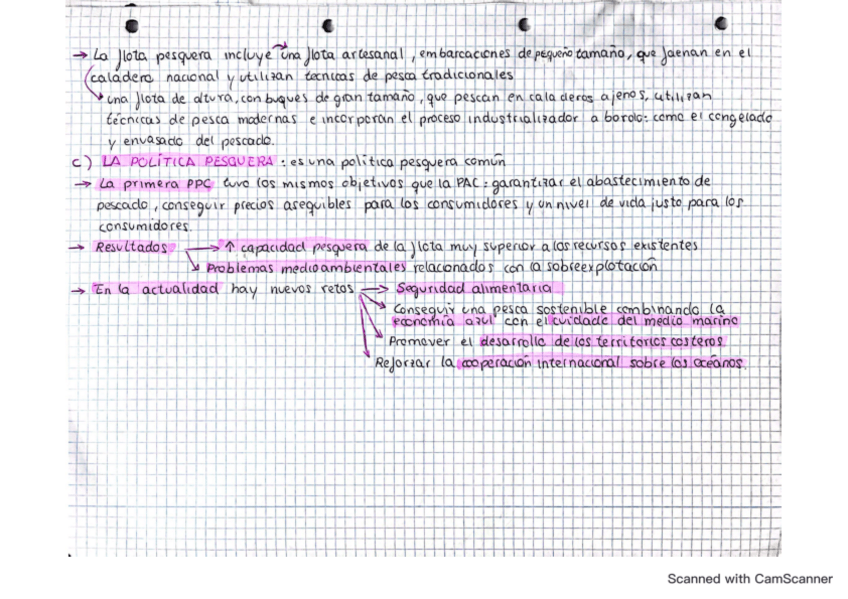 → La flota pesquera incluye una flota artesanal, embarcaciones de pequeño tamaño, que faenan en el
caladero nacional y utilizan técnicas de pesca tradicionales
una flota de altura, con buques de gran tamaño, que pescan en caladeros ajenos, utilizan
técnicas de pesca modernas e incorporan el proceso industrializador a bordo: como el congelado
y envasado del pescado.
c) LA POLÍTICA PESQUERA: es una política pesquera común
→ La primera PPC tuvo los mismos objetivos que la PAC: garantizar el abastecimiento de
pescado, conseguir precios asequibles para los consumidores y un nivel de vida justo para los
consumidores.
→ Resultados → ↑ capacidad pesquera de la flota muy superior a los recursos existentes
Problemas medioambientales relacionados con la sobreexplotación
→ En la actualidad hay nuevos retos → Seguridad alimentaria
Conseguir una pesca sostenible combinando la
economía azul con el cuidado del medio marino
Promover el desarrollo de los territorios costeros
Reforzar la cooperación internacional sobre los océanos.
Scanned with CamScanner